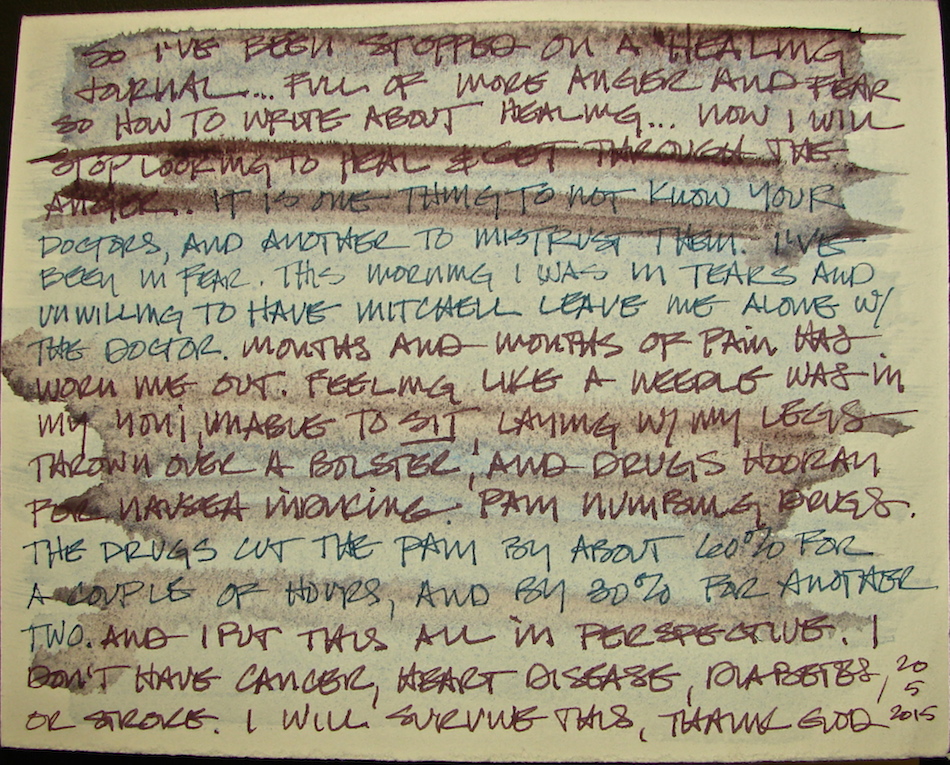 SO I'VE BEEN STOPPED ON A "HEALING
JOURNAL... FULL OF MORE ANGER AND FEAR
SO HOW TO WRITE ABOUT HEALING... NOW I WILL
STOP LOOKING TO HEAL & GET THROUGH THE
ANGER.. IT IS ONE THING TO NOT KNOW YOUR
DOCTORS, AND ANOTHER TO MISTRUST THEM. I'VE
BEEN IN FEAR. THIS MORNING I WAS IN TEARS AND
UNWILLING TO HAVE MITCHELL LEAVE ME ALONE W/
THE DOCTOR. MONTHS AND MONTHS OF PAIN HAS
WORN ME OUT. FEELING LIKE A NEEDLE WAS IN
MY YONI, UNABLE TO SIT, LAYING W/ MY LEGS
THROWN OVER A BOLSTER, AND DRUGS HOORAY
FOR NAUSEA INDUCING. PAIN NUMBING DRUGS.
THE DRUGS CUT THE PAIN BY ABOUT 60% FOR
A COUPLE OF HOURS, AND BY 30% FOR ANOTHER
TWO. AND I PUT THIS ALL IN PERSPECTIVE. I
DON'T HAVE CANCER, HEART DISEASE, DIABETES,
OR STROKE. I WILL SURVIVE THIS, THANK GOD
20
5
2015